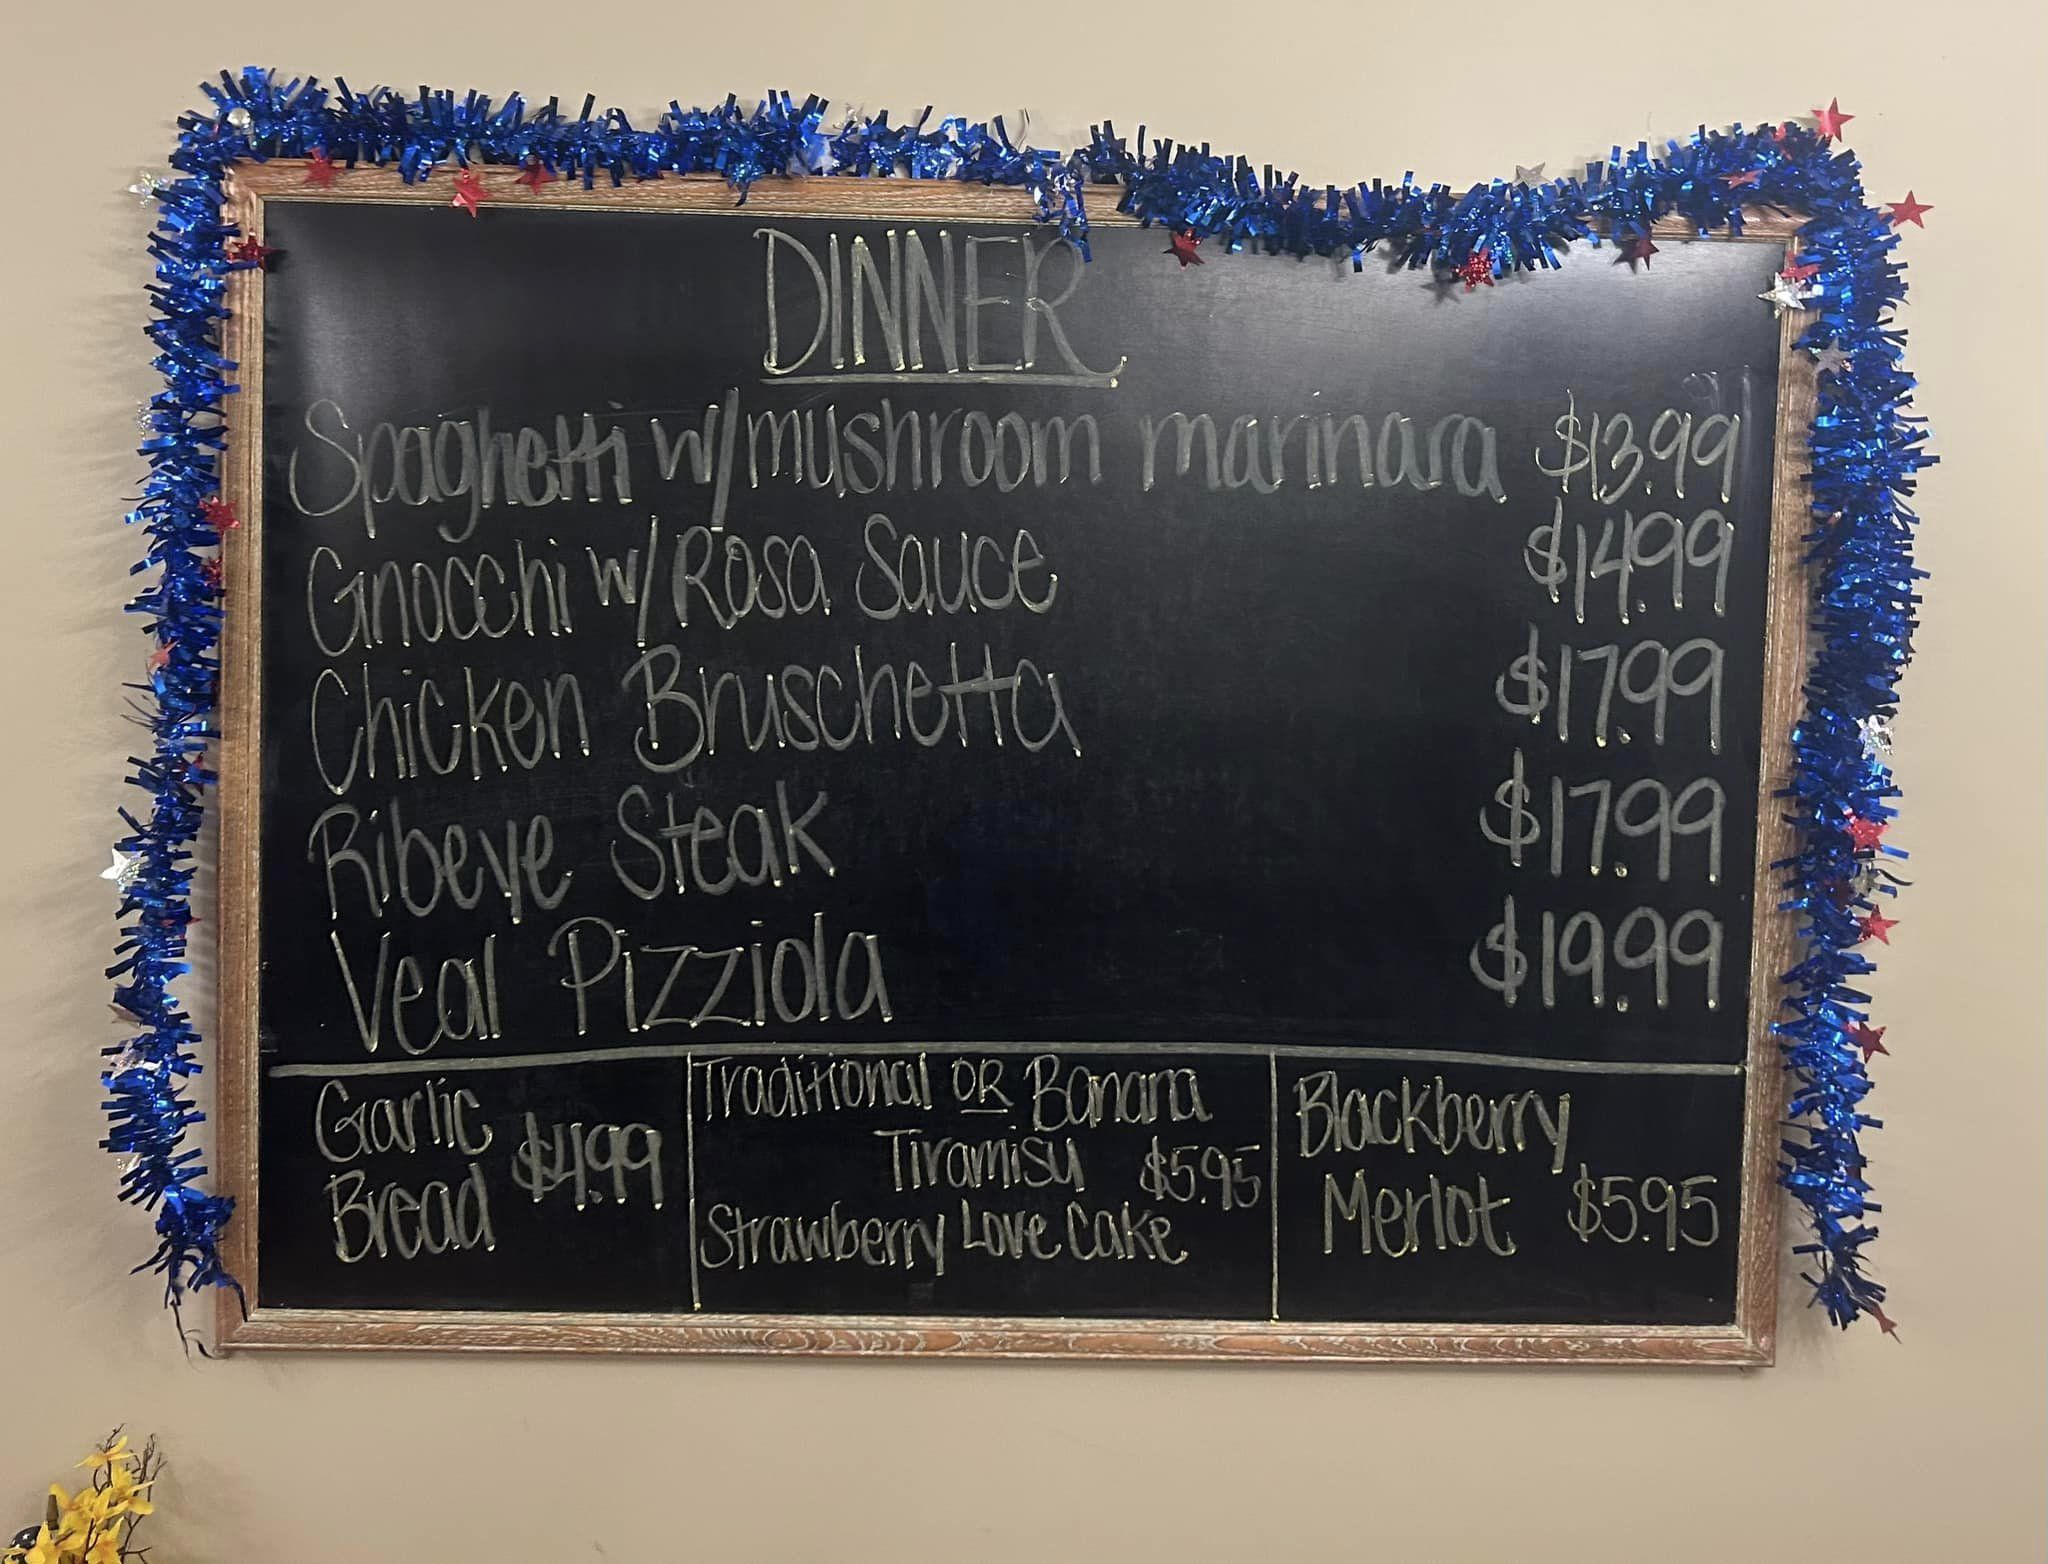 DINNER
Spaghetti w/mushroom marinara $13.99
Gnocchi w/Rosa Sauce $14.99
Chicken Bruschetta $17.99
Ribeye Steak $17.99
Veal Pizziola $19.99
Garlic
Bread $4.99
Traditional OR Banana
Tiramisu $5.95
Strawberry Love Cake
Blackberry
Merlot $5.95